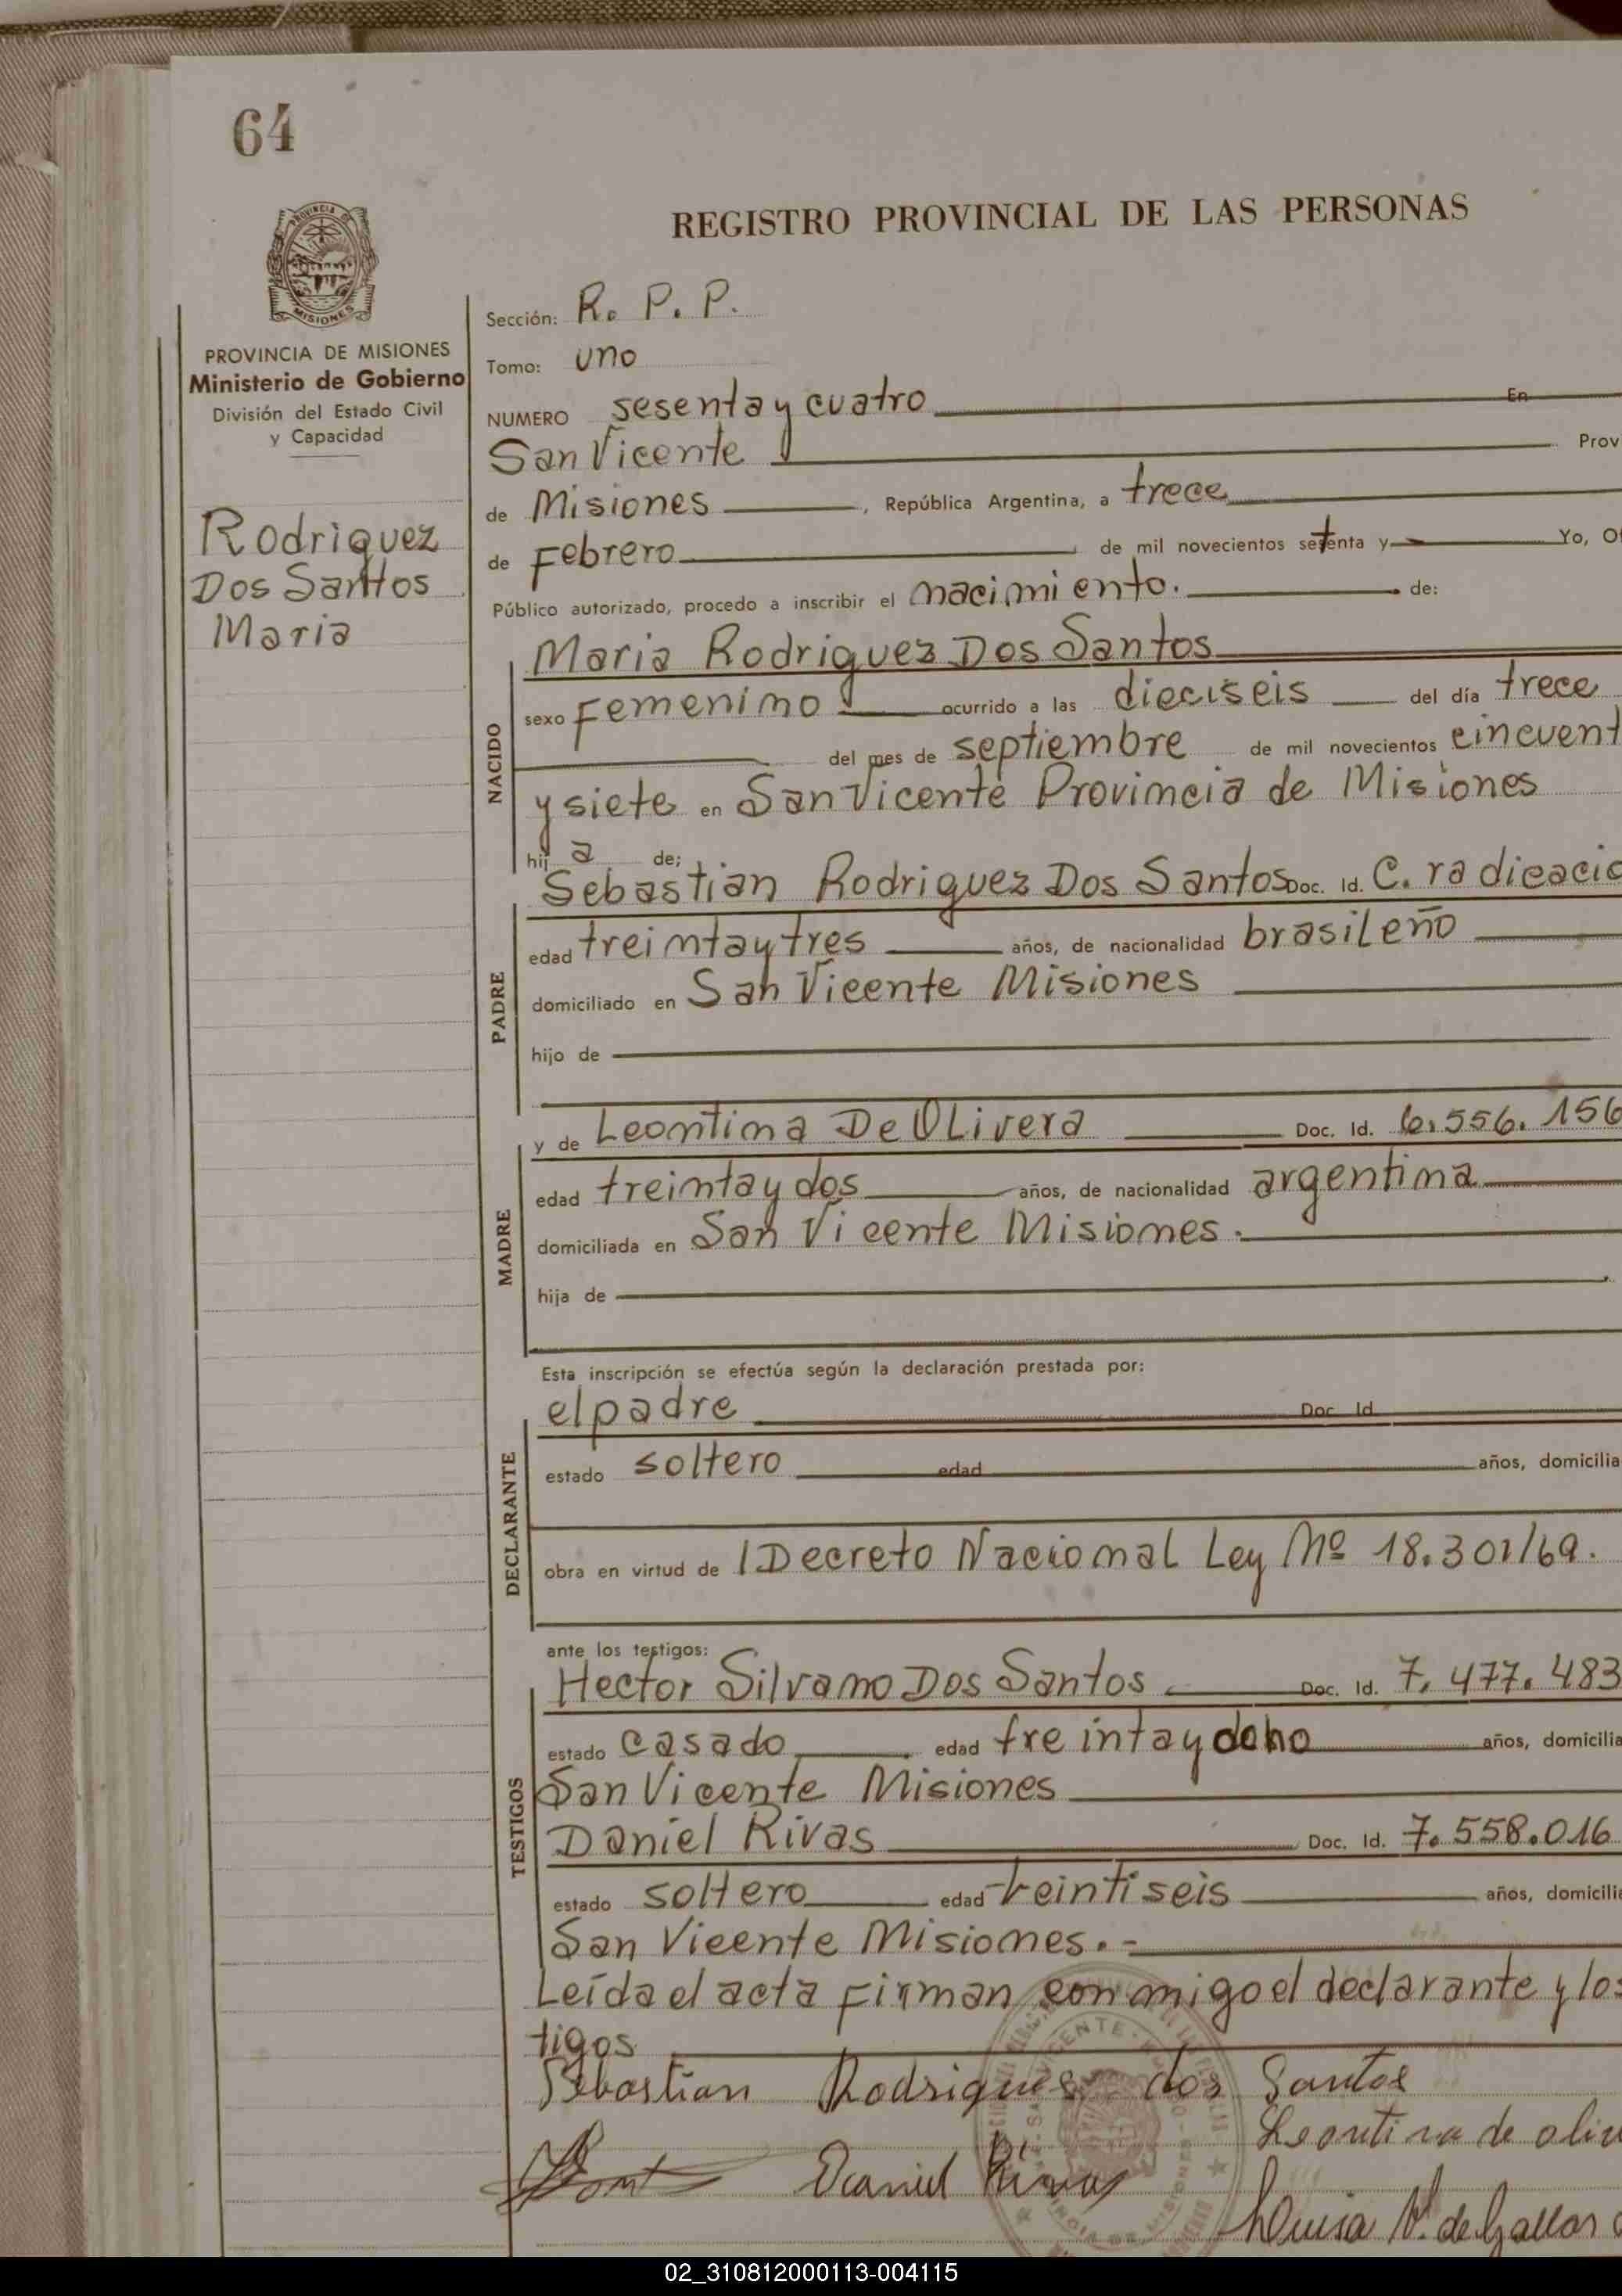 64
REGISTRO PROVINCIAL DE LAS PERSONAS
PROVINCIA DE MISIONES
Ministerio de Gobierno
División del Estado Civil
y Capacidad
Rodriguez
Dos Santos
Maria
Sección: R. P. P.
Tomo: uno
NUMERO sesenta y cuatro En
San Vicente Prov
de Misiones , República Argentina, a trece
de Febrero de mil novecientos setenta y Yo, Of
Público autorizado, procedo a inscribir el nacimiento. de:
NACIDO
Maria Rodriguez Dos Santos
sexo Femenino ocurrido a las dieciseis del día trece
del mes de septiembre de mil novecientos cincuent
y siete en San Vicente Provincia de Misiones
hij a de;
PADRE
Sebastian Rodriguez Dos Santos Doc. Id. C. radicacio
edad treinta y tres años, de nacionalidad brasileño
domiciliado en San Vicente Misiones
hijo de
MADRE
y de Leontina De Olivera Doc. Id. 6.556.156
edad treinta y dos años, de nacionalidad argentina
domiciliada en San Vicente Misiones.
hija de
Esta inscripción se efectúa según la declaración prestada por:
DECLARANTE
el padre Doc Id
estado soltero edad años, domicilia
obra en virtud de Decreto Nacional Ley Nº 18.301/69.
ante los testigos:
TESTIGOS
Hector Silvano Dos Santos Doc. Id. 7.477.483
estado casado edad treinta y ocho años, domicilia
San Vicente Misiones
Daniel Rivas Doc. Id. 7.558.016
estado soltero edad veintiseis años, domicilia
San Vicente Misiones.-
Leída el acta firman conmigo el declarante y los
tigos
Sebastian Rodrigues dos Santos
Leontina de oliv
Daniel Rivas
Luisa V. de Gallas
02_310812000113-004115